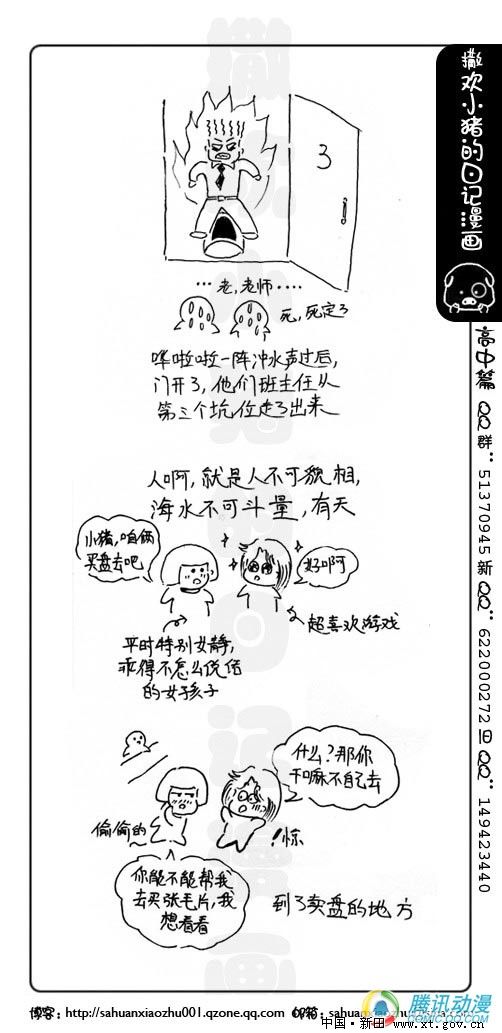 撒欢小猪的日记漫画
高中篇 QQ群：51370945 新QQ：622000272 旧QQ：149423440
3
…老，老师……
死，死定了
哗啦啦一阵冲水声过后，
门开了，他们班主任从
第三个坑位走了出来
人啊，就是人不可貌相，
海水不可斗量，有天
小猪，咱俩
买盘去吧
好啊
超喜欢游戏
平时特别文静，
乖得不怎么说话
的女孩子
什么？那你
干嘛不自己去
偷偷的
！惊
你能不能帮我
去买张毛片，我
想看看
到了卖盘的地方
腾讯动漫
博客：http://sahuanxiaozhu001.qzone.qq.com 邮箱：sahuanxiaozhu
中国·新田 www.xt.gov.cn